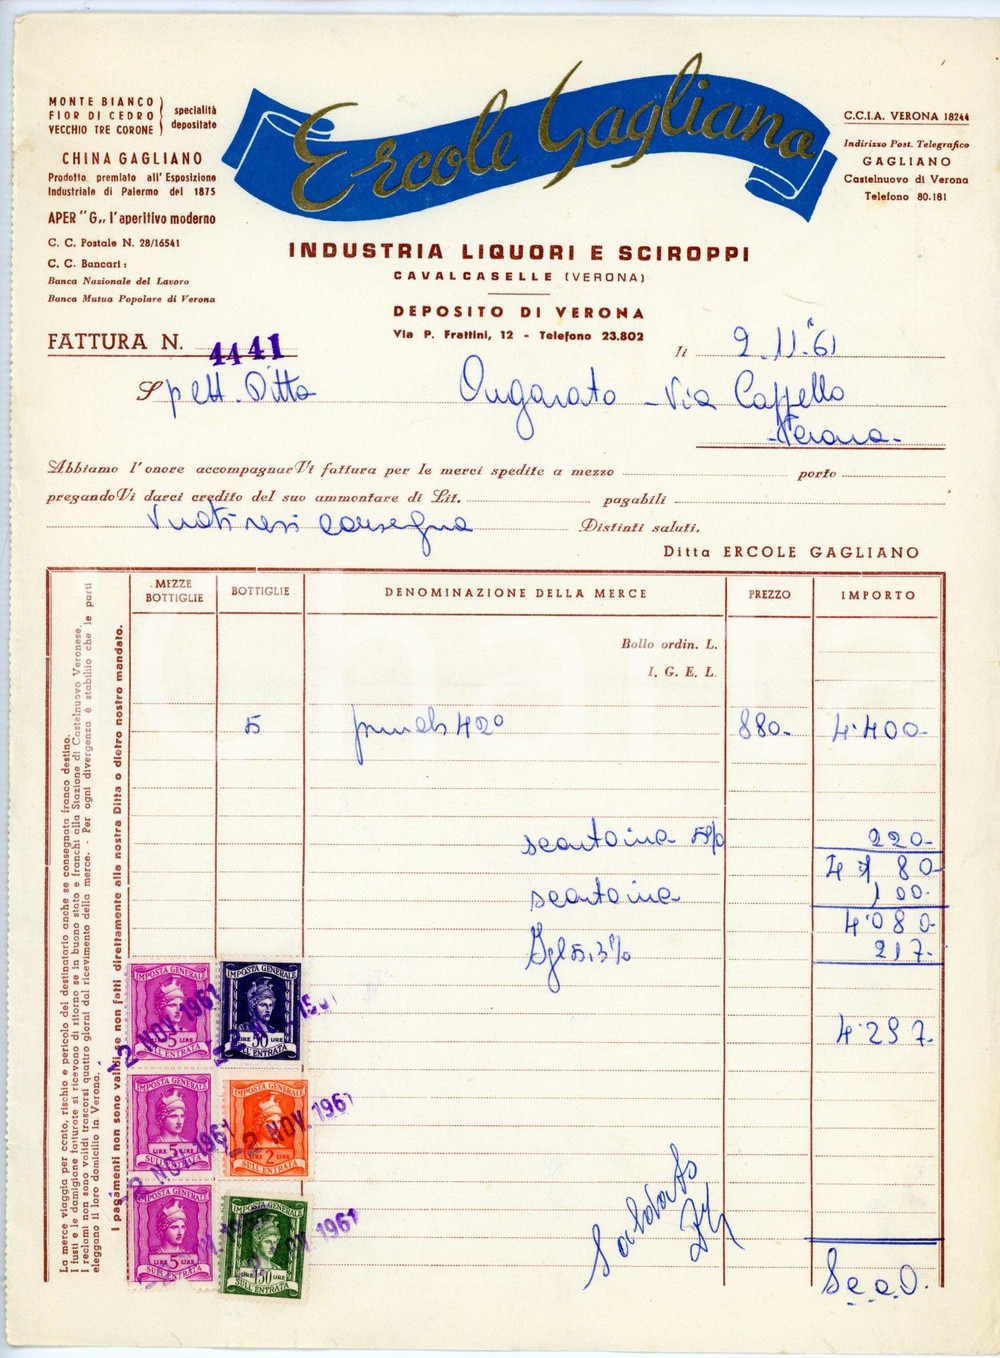 MONTE BIANCO
FIOR DI CEDRO
VECCHIO TRE CORONE
specialità
depositate
CHINA GAGLIANO
Prodotto premiato all' Esposizione
Industriale di Palermo del 1875
APER "G,, l'aperitivo moderno
C. C. Postale N. 28/16541
C. C. Bancari:
Banca Nazionale del Lavoro
Banca Mutua Popolare di Verona
Ercole Gagliano
C.C.I.A. VERONA 18244
Indirizzo Post. Telegrafico
GAGLIANO
Castelnuovo di Verona
Telefono 80.181
INDUSTRIA LIQUORI E SCIROPPI
CAVALCASELLE (VERONA)
DEPOSITO DI VERONA
Via P. Frattini, 12 - Telefono 23.802
FATTURA N. 4441
li 2.11.61
Spett. Ditta Ongarato - Via Cappello
- Verona -
Abbiamo l'onore accompagnarVi fattura per le merci spedite a mezzo porto
pregandoVi darci credito del suo ammontare di Lit. pagabili
Vuoti resi consegna Distinti saluti.
Ditta ERCOLE GAGLIANO
MEZZE BOTTIGLIE BOTTIGLIE DENOMINAZIONE DELLA MERCE PREZZO IMPORTO
Bollo ordin. L.
I. G. E. L.
5 42° 880.- 4.400-
5% 220-
4 1 80-
100-
4.080-
Ige 5,3% 217-
4.297-
Saldato
S.e.o.
La merce viaggia per conto, rischio e pericolo del destinatario anche se consegnata franco destino.
I fusti e le damigiane fatturate si ricevono di ritorno se in buono stato e franchi alla Stazione di Castelnuovo Veronese.
I reclami non sono validi trascorsi quattro giorni dal ricevimento della merce. - Per ogni divergenza è stabilito che le parti
eleggano il loro domicilio in Verona.
I pagamenti non sono validi se non fatti direttamente alla nostra Ditta o dietro nostro mandato.
IMPOSTA GENERALE
LIRE 5 LIRE
SULL'ENTRATA
2 NOV. 1961
IMPOSTA GENERALE
LIRE 50 LIRE
SULL'ENTRATA
IMPOSTA GENERALE
LIRE 5 LIRE
SULL'ENTRATA
2 NOV. 1961
IMPOSTA GENERALE
LIRE 2 LIRE
SULL'ENTRATA
2 NOV. 1961
IMPOSTA GENERALE
LIRE 5 LIRE
SULL'ENTRATA
IMPOSTA GENERALE
150
SULL'ENTRATA
1961